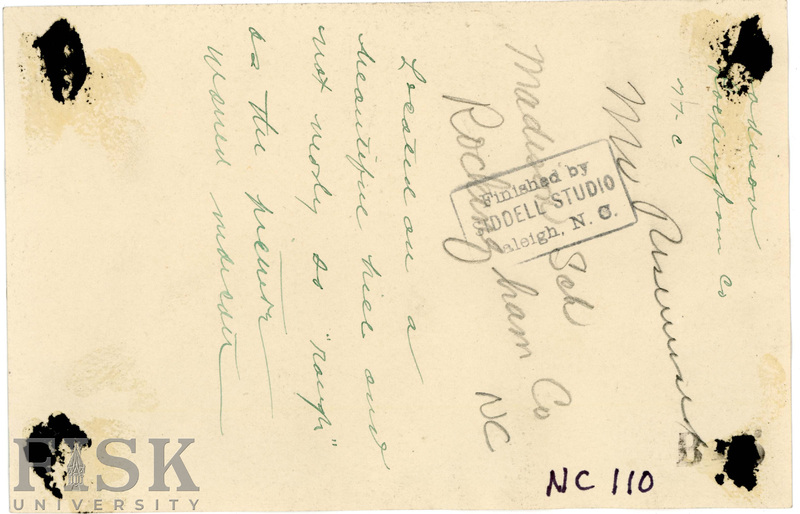 Madison
Rockingham Co
N. C
Mr
Madison Sch
Rockingham Co
NC
Finished by
DDELL STUDIO
aleigh, N. C.
Located on a
beautiful hill and
not nearly so "rough"
as the picture
would indicate
NC 110
FISK
UNIVERSITY